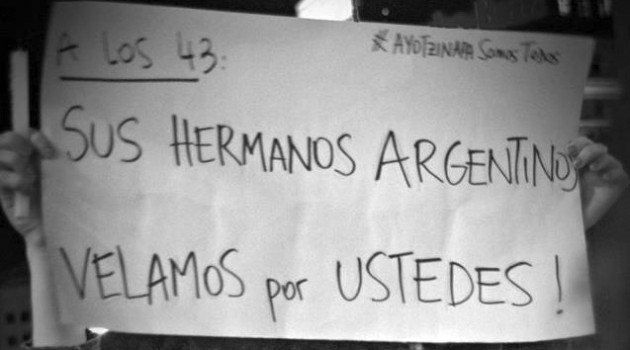 A LOS 43:
#AYOTZINAPA Somos Todos
SUS HERMANOS ARGENTINOS
VELAMOS por USTEDES!